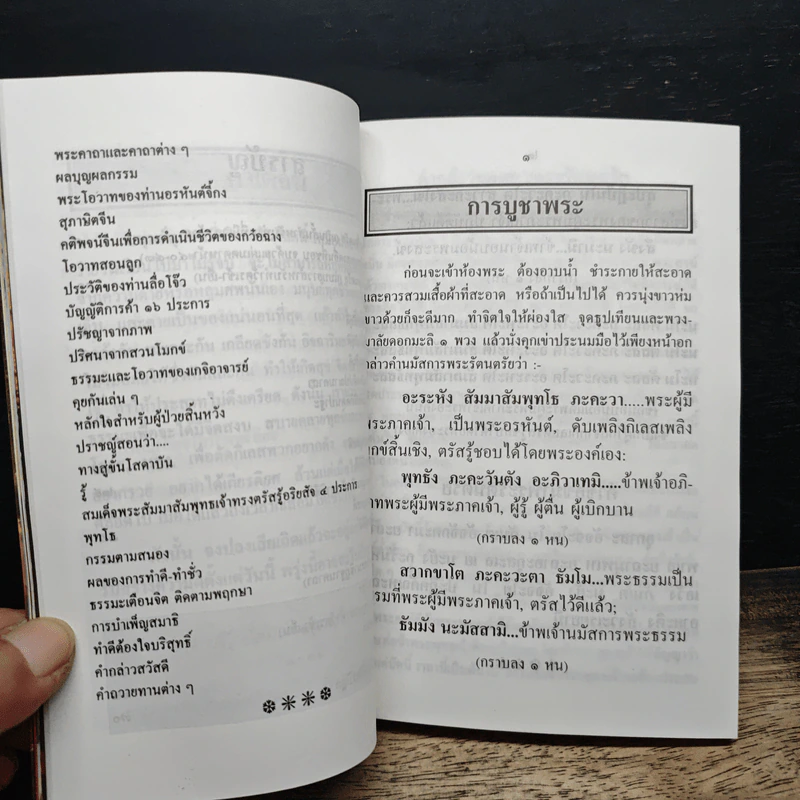 พระคาถาและคาถาต่าง ๆ
ผลบุญผลกรรม
พระโอวาทของท่านอรหันต์จี้กง
สุภาษิตจีน
คติพจน์จีนเพื่อการดำเนินชีวิตของก๋อฉาง
โอวาทสอนลูก
ประวัติของท่านลื่อโจ๊ว
บัญญัติการค้า ๑๖ ประการ
ปรัชญาจากภาพ
ปริศนาจากสวนโมกข์
ธรรมะและโอวาทของเกจิอาจารย์
คุยกันเล่น ๆ
หลักใจสำหรับผู้ป่วยสิ้นหวัง
ปราชญ์สอนว่า....
ทางสู่ขั้นโสดาบัน
รู้
สมเด็จพระสัมมาสัมพุทธเจ้าทรงตรัสรู้อริยสัจ ๔ ประการ
พุทโธ
กรรมตามสนอง
ผลของการทำดี-ทำชั่ว
ธรรมะเตือนจิต ติดตามพฤกษา
การบำเพ็ญสมาธิ
ทำดีต้องใจบริสุทธิ์
คำกล่าวสวัสดี
คำถวายทานต่าง ๆ
๑
การบูชาพระ
ก่อนจะเข้าห้องพระ ต้องอาบน้ำ ชำระกายให้สะอาด
และควรสวมเสื้อผ้าที่สะอาด หรือถ้าเป็นไปได้ ควรนุ่งขาวห่ม
ขาวด้วยก็จะดีมาก ทำจิตใจให้ผ่องใส จุดธูปเทียนและพวง-
มาลัยดอกมะลิ ๑ พวง แล้วนั่งคุกเข่าประนมมือไว้เพียงหน้าอก
กล่าวคำนมัสการพระรัตนตรัยว่า :-
อะระหัง สัมมาสัมพุทโธ ภะคะวา.....พระผู้มี
พระภาคเจ้า, เป็นพระอรหันต์, ดับเพลิงกิเลสเพลิง
ทุกข์สิ้นเชิง, ตรัสรู้ชอบได้โดยพระองค์เอง:
พุทธัง ภะคะวันตัง อะภิวาเทมิ.....ข้าพเจ้าอภิ-
วาทพระผู้มีพระภาคเจ้า, ผู้รู้ ผู้ตื่น ผู้เบิกบาน
(กราบลง ๑ หน)
สวากขาโต ภะคะวะตา ธัมโม...พระธรรมเป็น
ธรรมที่พระผู้มีพระภาคเจ้า, ตรัสไว้ดีแล้ว;
ธัมมัง นะมัสสามิ...ข้าพเจ้านมัสการพระธรรม
(กราบลง ๑ หน)